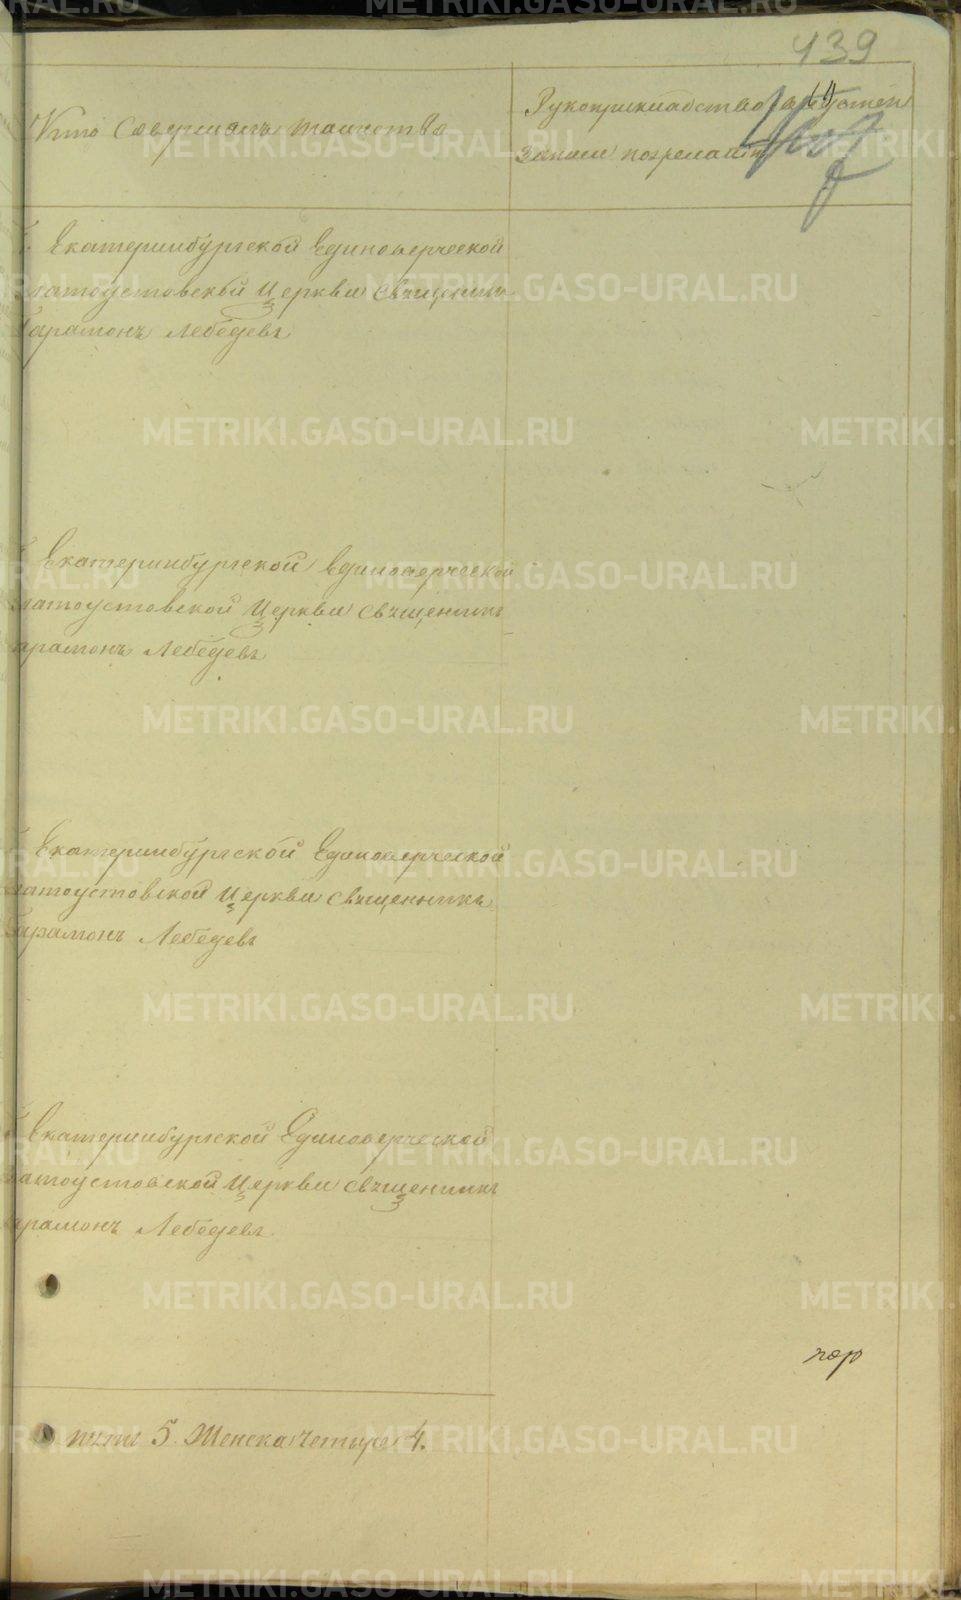 439
Кто совершалъ таинство
Рукоприкладство свидетелей
записи по желанію
Екатеринбургской Единоверческой
Златоустовской Церкви Священникъ
Парамонъ Лебедевъ
Екатеринбургской Единоверческой
латоустовской Церкви Священникъ
арамонъ Лебедевъ
Екатеринбургской Единоверческой
латоустовской Церкви Священникъ
Парамонъ Лебедевъ
Екатеринбургской Единоверческой
латоустовской Церкви Священникъ
арамонъ Лебедевъ
пять 5. Женска четыре 4.
METRIKI.GASO-URAL.RU